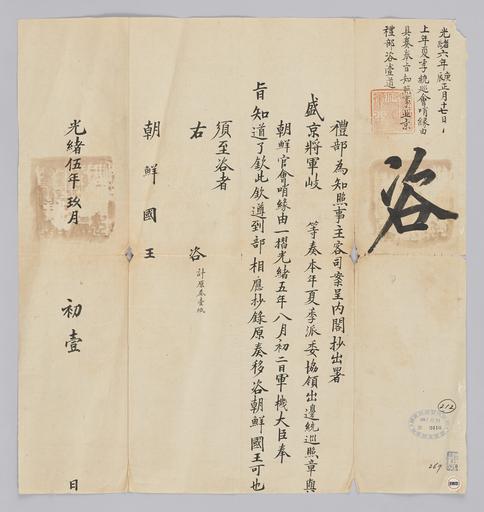 咨
光緒六年庚辰正月十七日
上年夏季統巡會哨緣由
具奏奉旨知照事並京
禮部咨壹道
禮部為知照事主客司案呈內閣抄出署
盛京將軍岐 等奏本年夏季派委協領出邊統巡照章與
朝鮮官會哨緣由一摺光緒五年八月初二日軍機大臣奉
旨知道了欽此欽遵到部相應抄錄原奏移咨朝鮮國王可也
須至咨者
右 咨 計原奏壹紙
朝鮮國王
光緒伍年玖月 初壹 日
212
269